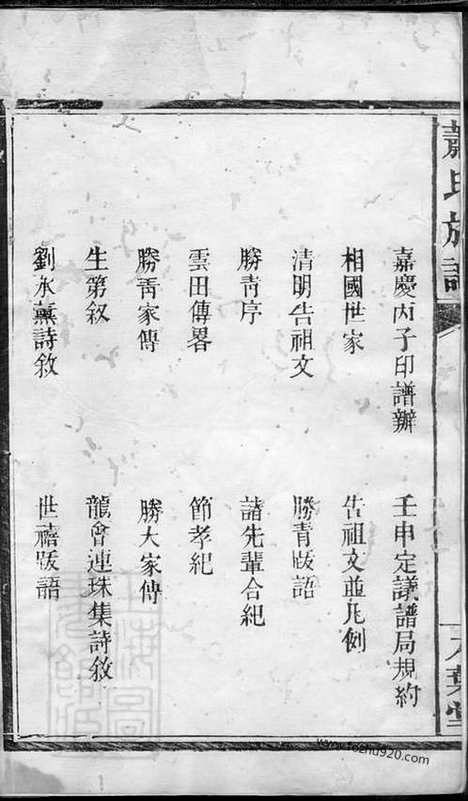 蕭氏族譜
嘉慶丙子印譜辦
壬申定議譜局規約
相國世家
告祖文並凡例
清明告祖文
勝青跋語
勝靑序
諸先輩合紀
雲田傳畧
節孝紀
勝靑家傳
勝大家傳
生第叙
龍會連珠集詩敘
劉永薰詩敘
世禧跋語
八葉堂
www.foezhu920.com